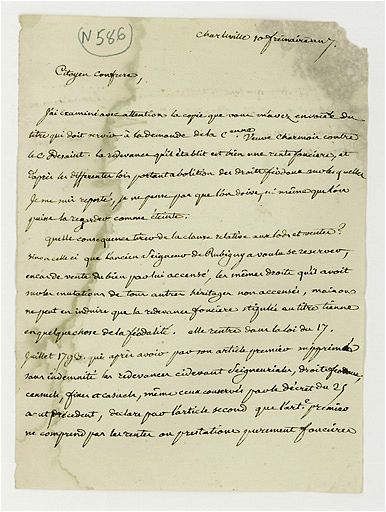 N 586
Charleville 10 frimaire an 7.
Citoyen Confrere,
J'ai examiné avec attention la copie que vous m'avez envoiée du
titre qui doit servir à la demande de la C.enne Veuve Charmois contre
le C. Desaint. la redevance qu'il établit est bien une rente foncière, et
d'après les differentes lois portant abolition des droits féodaux sur lesquelles
Je me suis reporté, je ne pense pas que l'on doive, ni même que l'on
puisse la regarder comme éteinte.
Quelle consequence tirer de la clause relative aux lods et ventes?
sinon celle ci que l'ancien Seigneur de Rubigny a voulu se reserver,
en cas de vente du bien par lui accensé, les mêmes droits qu'il avoit
sur les mutations de tous autres héritages non accensés, mais on
ne peut en induire que la redevance foncière stipulée au titre tienne
en quelque chose de la féodalité. elle rentre dans la loi du 17.
Juillet 1793. qui après avoir par son article premier supprimé
sans indemnité les redevances cidevant Seigneuriales, droits féodaux,
censuels, fixes et casuels, même ceux conservés par le décret du 25
aout précédent, déclare par l'article second que l'art.e premier
ne comprend pas les rentes ou prestations purement foncières